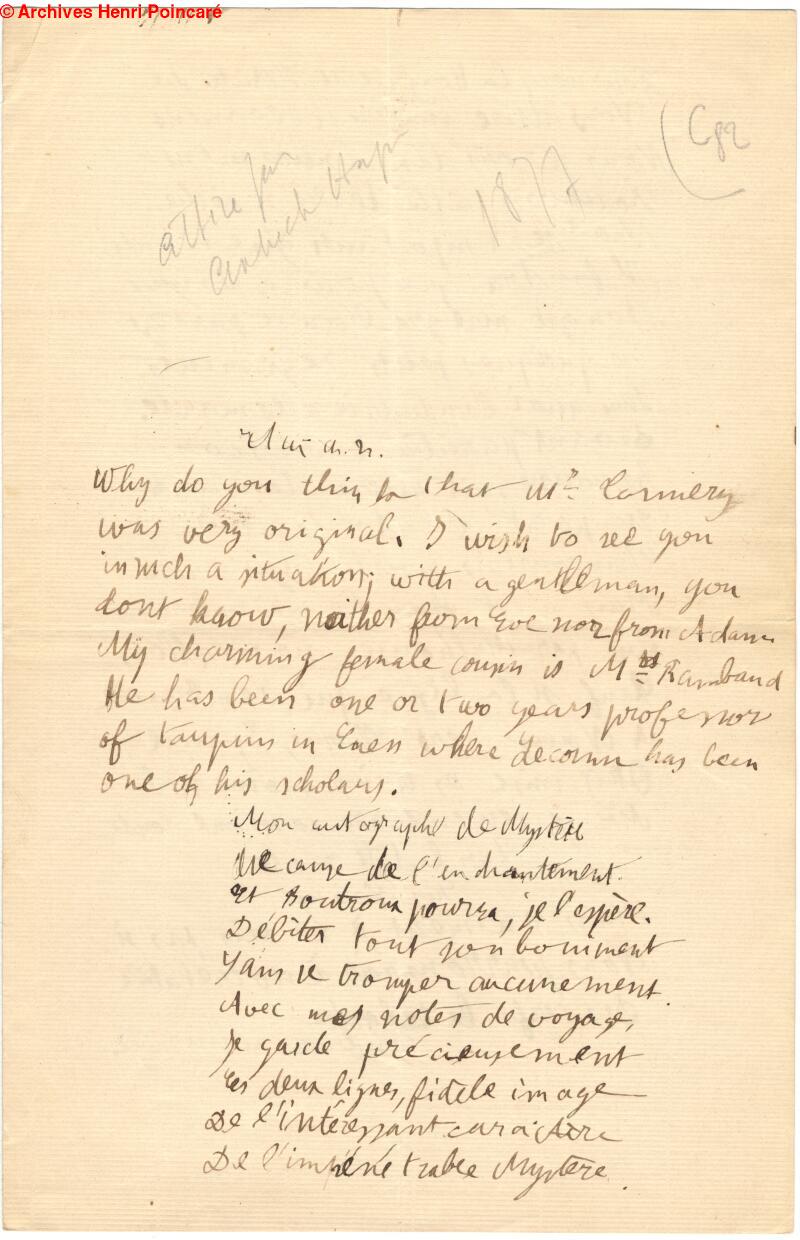 © Archives Henri Poincaré
1877
Why do you think that Mr
was very original. I wish to see you
in such a situation; with a gentleman, you
dont know, neither from Eve nor from Adam
My charming female cousin is Mrs Rambaud
He has been one or two years professor
of taupins in Caen where Lecornu has been
one of his scholars.
Mon autographe de Mystère
Me cause de l'enchantement.
Et Boutroux pourra, je l'espère.
Débiter tout son boniment
Sans se tromper aucunement.
Avec mes notes de voyage,
Je garde précieusement
Ces deux lignes, fidèle image
De l'intéressant caractère
De l'impénétrable Mystère.